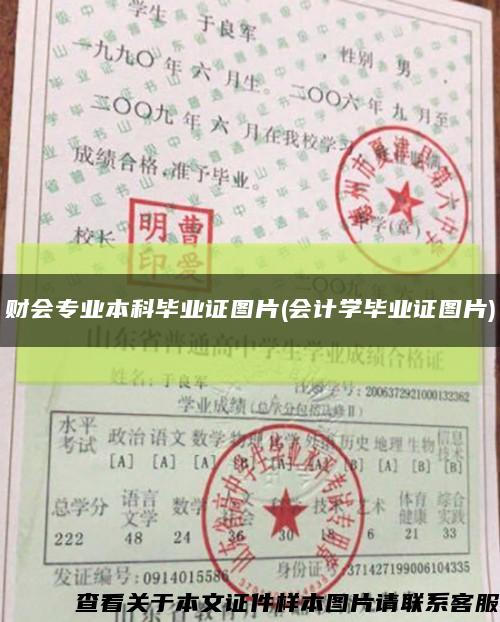 学生 于良军 ，性别 男 ，
一九九〇 年 六 月生。二〇〇六 年 九 月至
二〇〇九 年 六 月在我校学习
成绩合格，准予毕业。
德州市夏津县第六中学
校长
曹爱明印
学(章)
二〇〇九
财会专业本科毕业证图片(会计学毕业证图片)
山东省普通高中学生学业成绩合格证
姓名：于良军 学号：2006372921000132362
学业成绩（总学分包括必修Ⅱ）
水平考试 政治 语文 数学 物理 化学 外语 历史 地理 生物 信息技术
[A] [A] [A] [B] [A] [B] [B]
总学分 语言文学 数学 技术 艺术 体育健康 综合实践
222 48 24 36 30 18 6 22 33
发证编号：0914015586 身份证号：371427199006104335
查看关于本文证件样本图片请联系客服